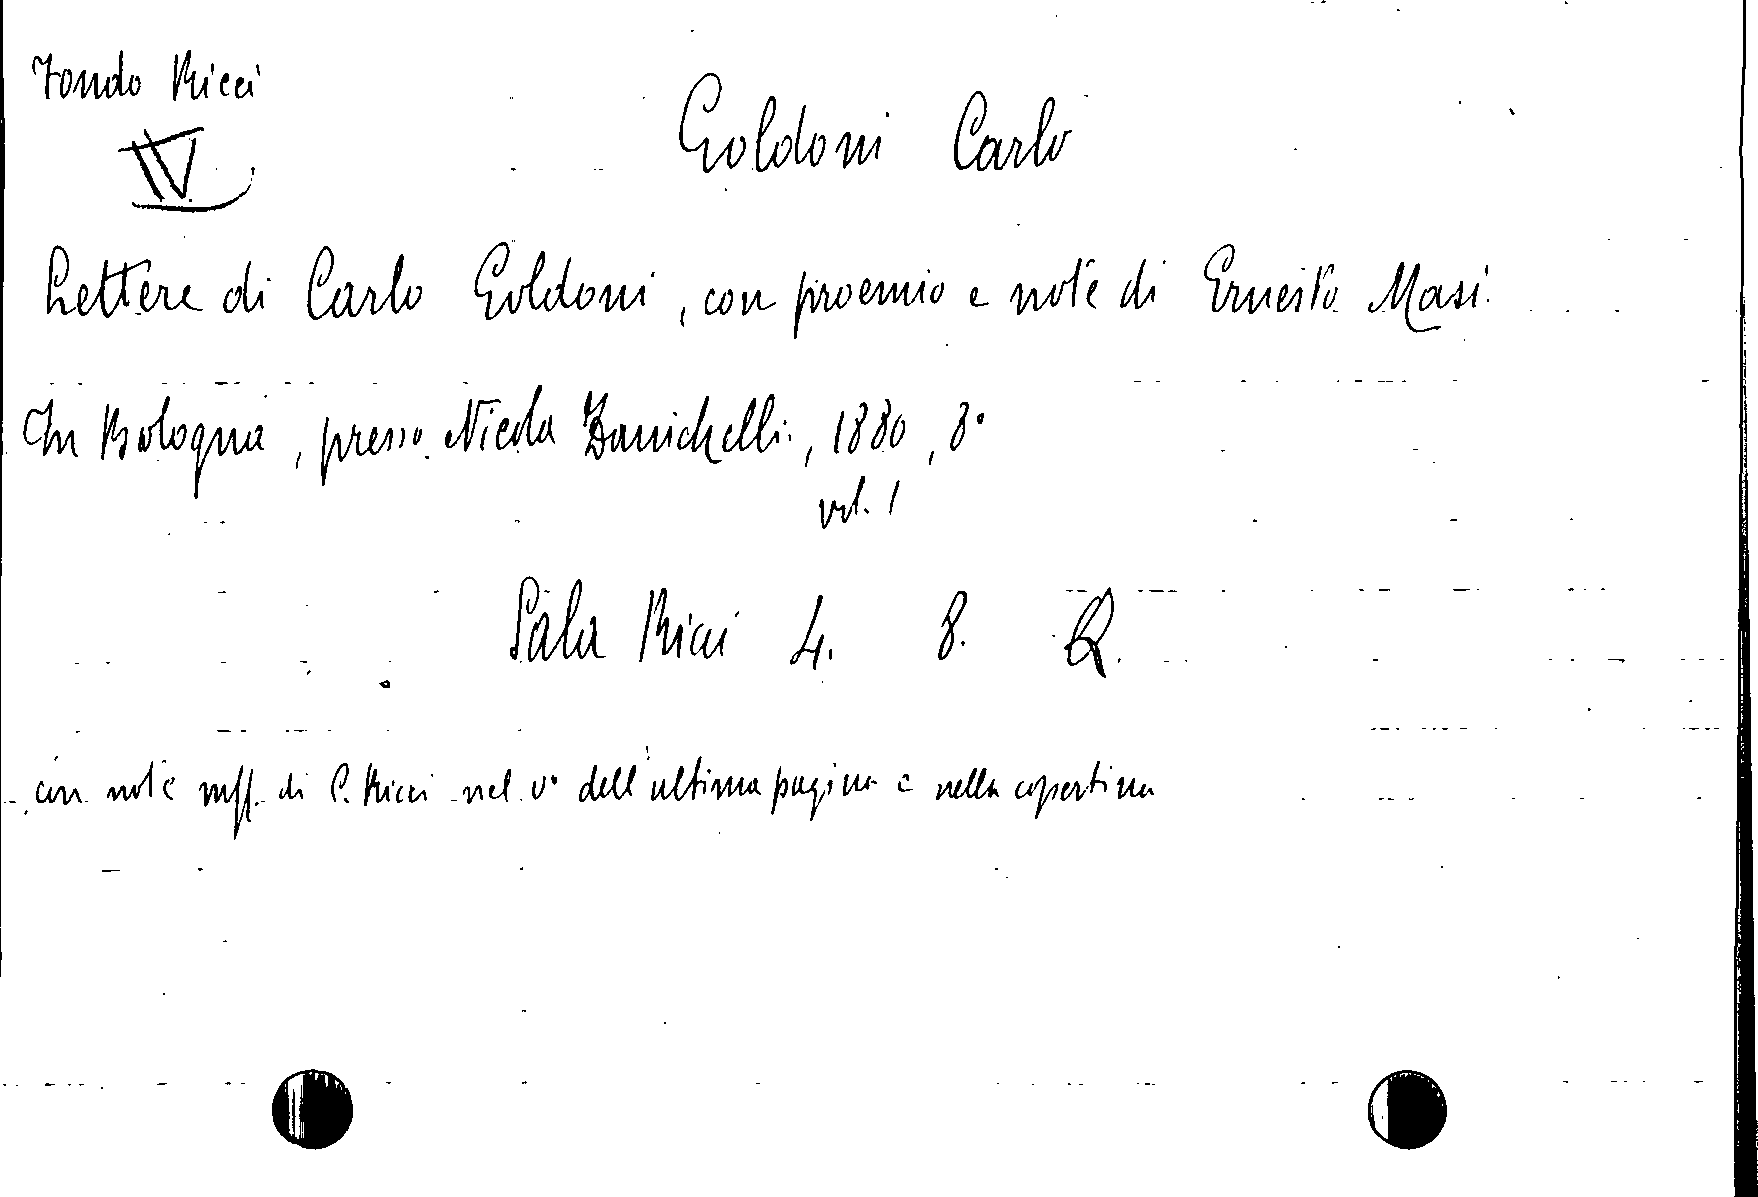 Fondo Ricci
IV
Goldoni Carlo
Lettere di Carlo Goldoni, con proemio e note di Ernesto Masi.
In Bologna, presso Nicola Zanichelli, 1880, 8°
vol. 1
Sala Ricci 4. 8. Q.
con note mss. di C. Ricci nel v° dell'ultima pagina e nella copertina